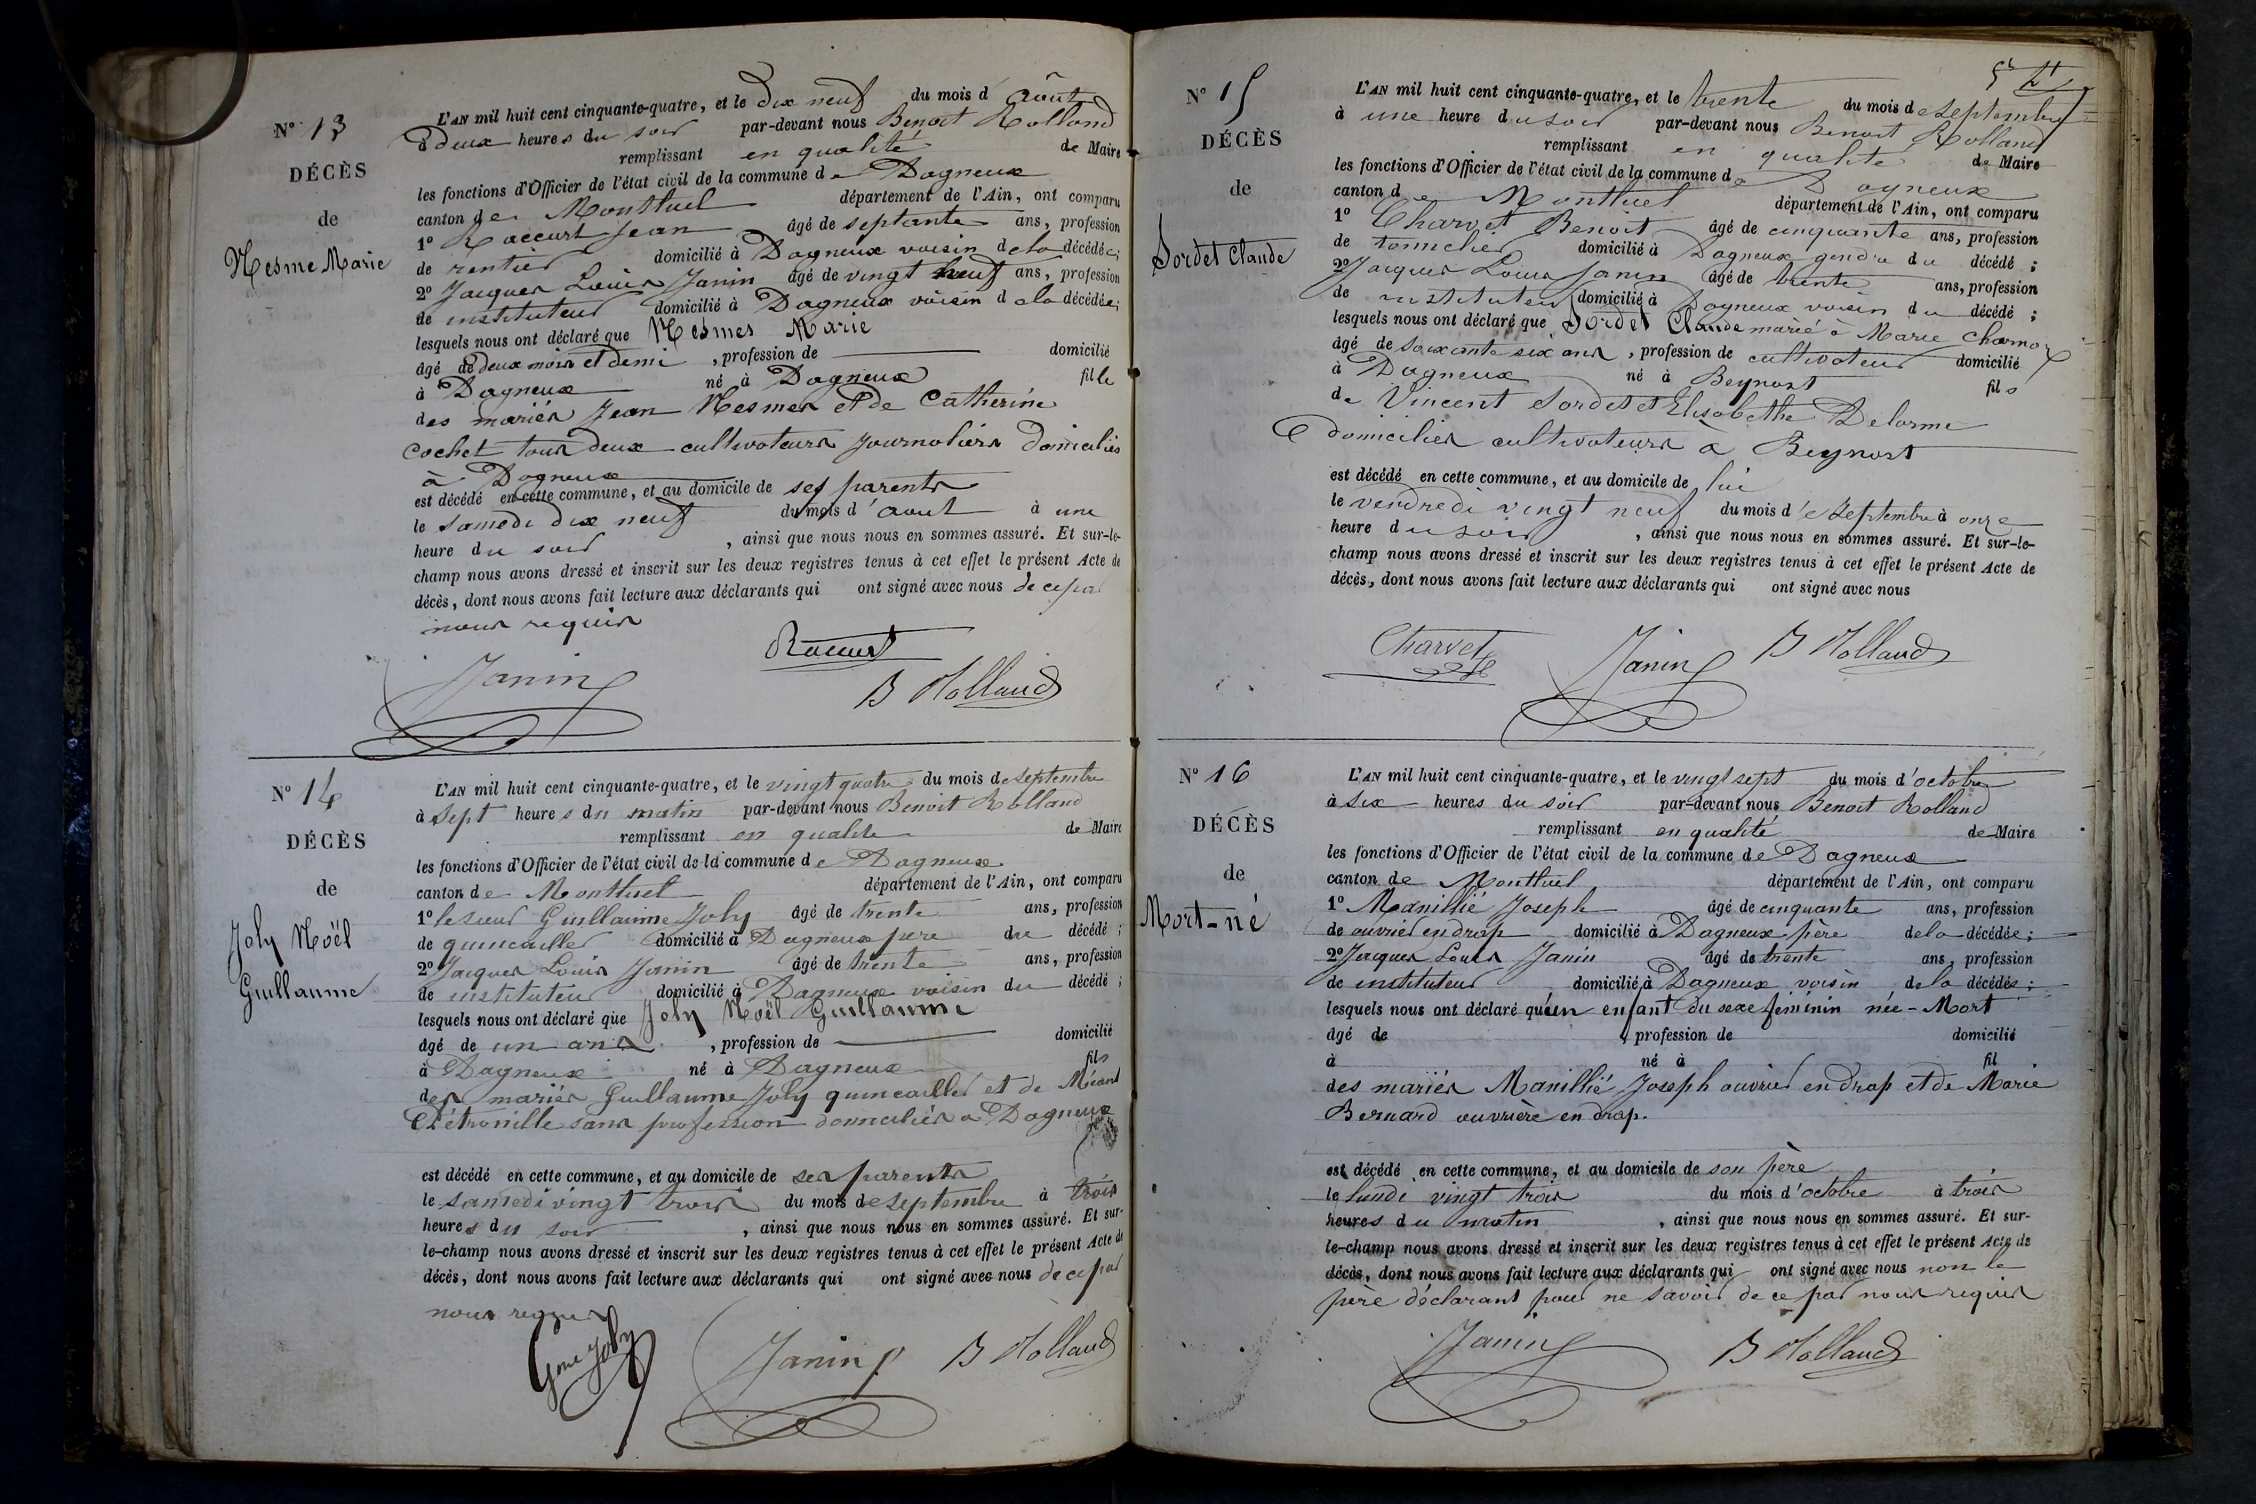 N° 13
DÉCÈS
de
Nesme Marie
L'AN mil huit cent cinquante-quatre, et le dix neuf du mois d août
à deux heures du soir par-devant nous Benoit Rolland
remplissant en qualité de Maire
les fonctions d'Officier de l'état civil de la commune de Dagneux
canton de Montluel département de l'Ain, ont comparu
1° Raccurt Jean âgé de septante ans, profession
de rentier domicilié à Dagneux voisin de la décédée;
2° Jacques Louis Janin âgé de vingt neuf ans, profession
de instituteur domicilié à Dagneux voisin de la décédée;
lesquels nous ont déclaré que Nesmes Marie
âgé de deux mois et demi, profession de domicilié
à Dagneux né à Dagneux fille
des mariés Jean Nesmes et de Catherine
Cochet tous deux cultivateurs journaliers domiciliés
à Dagneux
est décédé en cette commune, et au domicile de ses parents
le samedi dix neuf du mois d'aout à une
heure du soir, ainsi que nous nous en sommes assuré. Et sur-le-
champ nous avons dressé et inscrit sur les deux registres tenus à cet effet le présent Acte de
décès, dont nous avons fait lecture aux déclarants qui ont signé avec nous de ce par
nous requis
Raccurt
Janin
B Rolland
N° 14
DÉCÈS
de
Joly Noël
Guillaume
L'AN mil huit cent cinquante-quatre, et le vingt quatre du mois de septembre
à sept heures du matin par-devant nous Benoit Rolland
remplissant en qualité de Maire
les fonctions d'Officier de l'état civil de la commune de Dagneux
canton de Montluel département de l'Ain, ont comparu
1° le sieur Guillaume Joly âgé de trente ans, profession
de quincailler domicilié à Dagneux père du décédé;
2° Jacques Louis Janin âgé de trente ans, profession
de instituteur domicilié à Dagneux voisin du décédé;
lesquels nous ont déclaré que Joly Noël Guillaume
âgé de un ans, profession de domicilié
à Dagneux né à Dagneux fils
des mariés Guillaume Joly quincailler et de
sans profession domiciliés à Dagneux
est décédé en cette commune, et au domicile de ses parents
le samedi vingt trois du mois de septembre à trois
heures du soir, ainsi que nous nous en sommes assuré. Et sur-
le-champ nous avons dressé et inscrit sur les deux registres tenus à cet effet le présent Acte de
décès, dont nous avons fait lecture aux déclarants qui ont signé avec nous de ce par
nous requis
Gme Joly
Janin
B Rolland
N° 15
DÉCÈS
de
Sordet Claude
L'AN mil huit cent cinquante-quatre, et le trente du mois de septembre
à une heure du soir par-devant nous Benoit Rolland
remplissant en qualité de Maire
les fonctions d'Officier de l'état civil de la commune de Dagneux
canton de Montluel département de l'Ain, ont comparu
1° Charvet Benoit âgé de cinquante ans, profession
de tonnelier domicilié à Dagneux gendre du décédé;
2° Jacques Louis Janin âgé de trente ans, profession
de instituteur domicilié à Dagneux voisin du décédé;
lesquels nous ont déclaré que Sordet Claude marié à Marie
âgé de soixante six ans, profession de cultivateur domicilié
à Dagneux né à Beynost fils
de Vincent Sordet et Elisabethe Delorme
domiciliés cultivateurs à Beynost
est décédé en cette commune, et au domicile de lui
le vendredi vingt neuf du mois d'e septembre à onze
heure du soir, ainsi que nous nous en sommes assuré. Et sur-le-
champ nous avons dressé et inscrit sur les deux registres tenus à cet effet le présent Acte de
décès, dont nous avons fait lecture aux déclarants qui ont signé avec nous
Charvet
Janin
B Rolland
N° 16
DÉCÈS
de
Mort-né
L'AN mil huit cent cinquante-quatre, et le vingt sept du mois d'octobre
à six heures du soir par-devant nous Benoit Rolland
remplissant en qualité de Maire
les fonctions d'Officier de l'état civil de la commune de Dagneux
canton de Montluel département de l'Ain, ont comparu
1° Manillié Joseph âgé de cinquante ans, profession
de ouvrier en drap domicilié à Dagneux père de la décédée;
2° Jacques Louis Janin âgé de trente ans, profession
de instituteur domicilié à Dagneux voisin de la décédée;
lesquels nous ont déclaré qu'un enfant du sexe féminin née-Mort
âgé de, profession de domicilié
à né à fil
des mariés Manillié Joseph ouvrier en drap et de Marie
Bernard ouvrière en drap.
est décédé en cette commune, et au domicile de son père
le lundi vingt trois du mois d'octobre à trois
heures du matin, ainsi que nous nous en sommes assuré. Et sur-
le-champ nous avons dressé et inscrit sur les deux registres tenus à cet effet le présent Acte de
décès, dont nous avons fait lecture aux déclarants qui ont signé avec nous non le
père déclarant pour ne savoir de ce par nous requis
Janin
B Rolland